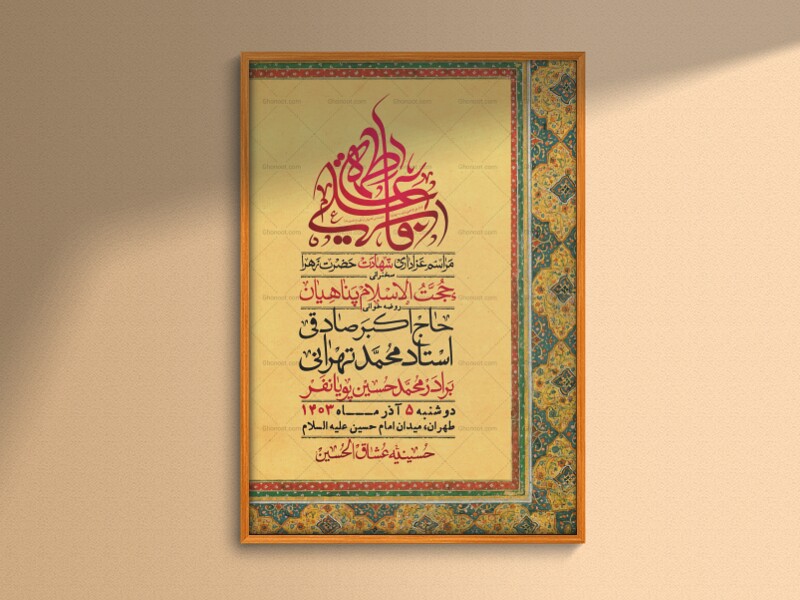 مراسم عزاداری شهادت حضرت زهرا
سخنرانی
حجت الإسلام پناهیان
روضه خوانی
حاج اکبر صادقی
استاد محمد تهرانی
برادر محمد حسین پویانفر
دوشنبه ۵ آذر مـاه ۱۴۰۳
طهران، میدان امام حسین علیه السلام
حسینیه عشاق الحسین
Ghonoot.com